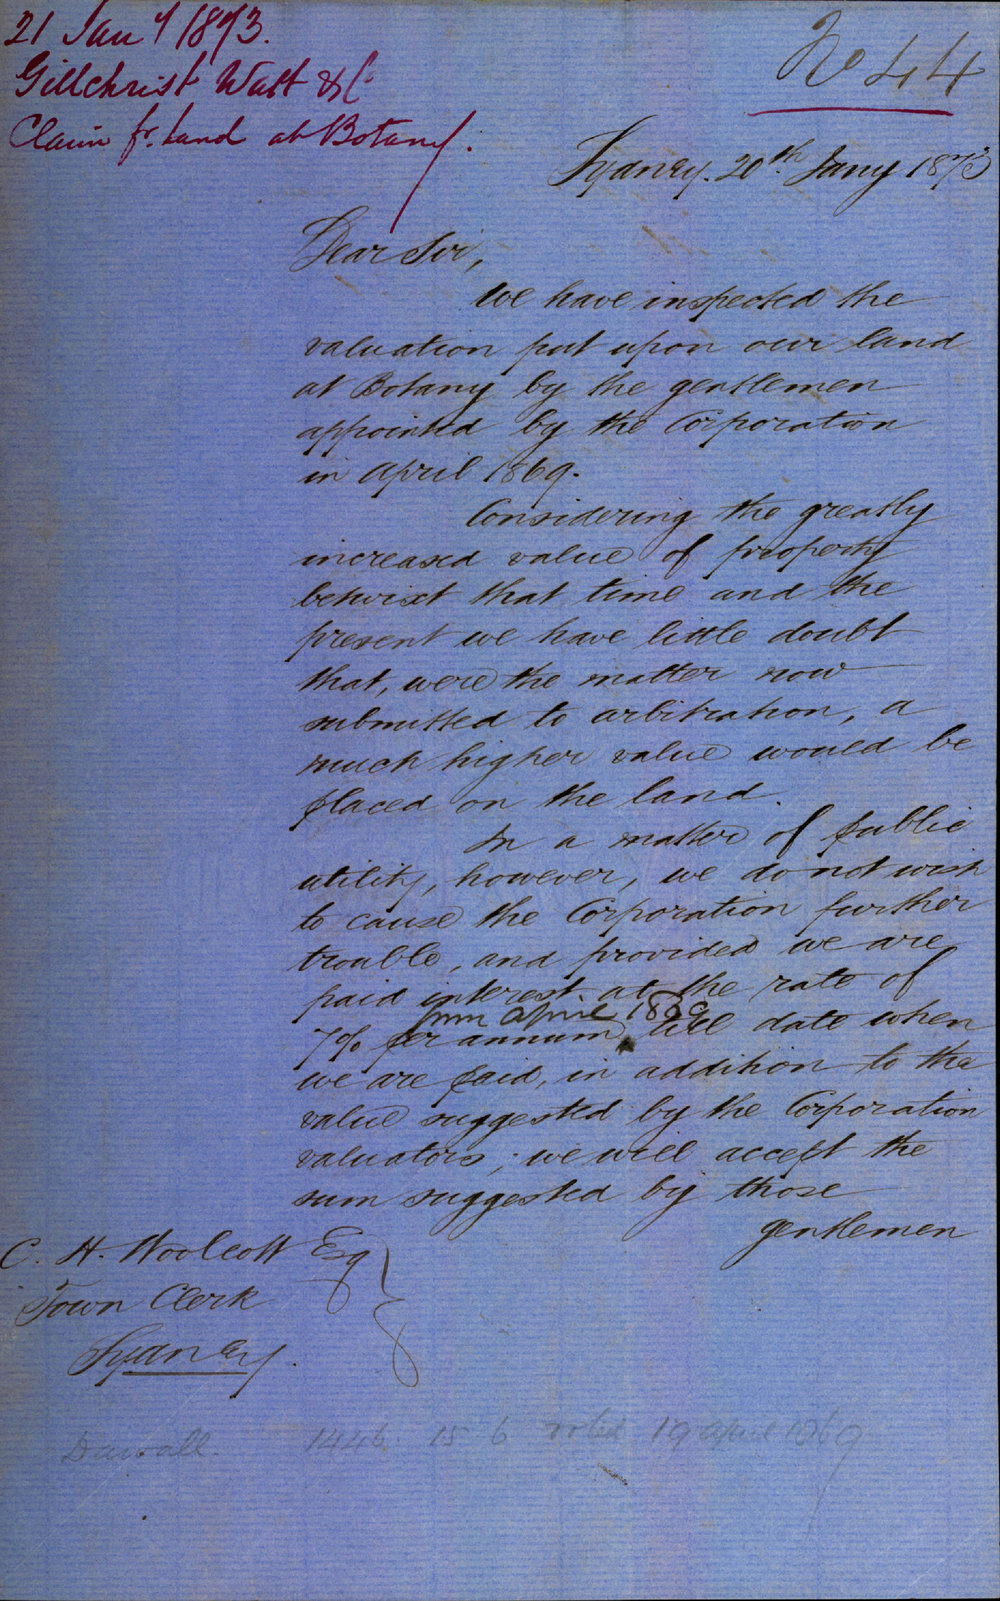 21 Jany 1873.
Gillchrist Watt & Co
Claim fr. Land at Botany.
No 44
Sydney. 20th. Jany 1873
Dear Sir,
We have inspected the
valuation put upon our land
at Botany by the gentlemen
appointed by the Corporation
in April 1869.
Considering the greatly
increased value of property
betwixt that time and the
present we have little doubt
that, were the matter now
submitted to arbitration, a
much higher value would be
placed on the land.
In a matter of public
utility, however, we do not wish
to cause the Corporation further
trouble, and provided we are
paid interest at the rate of
from April 1869
7% per annum, till date when
we are paid, in addition to the
value suggested by the Corporation
valuators; we will accept the
sum suggested by those
gentlemen
C. H. Woolcott Esq
Town Clerk
Sydney.
1446. 15 6 19 April 1869